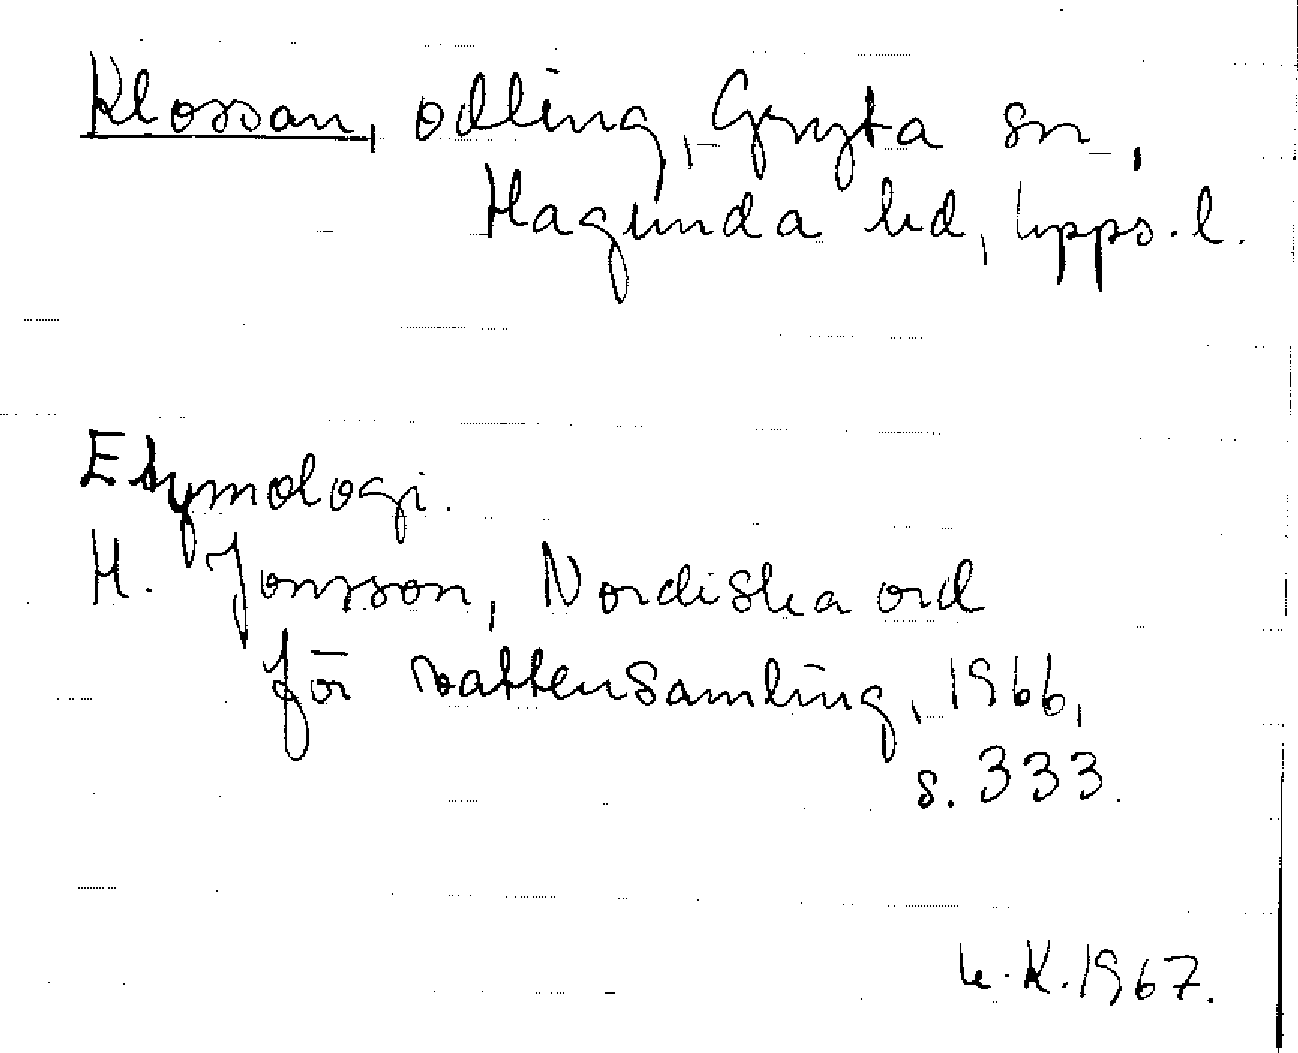 Klossan, odling, Gryta sn,
Hagunda hd, Upps. l.
Etymologi.
H. Jonsson, Nordiska ord
för vattensamling, 1966,
s. 333.
K. 1967.